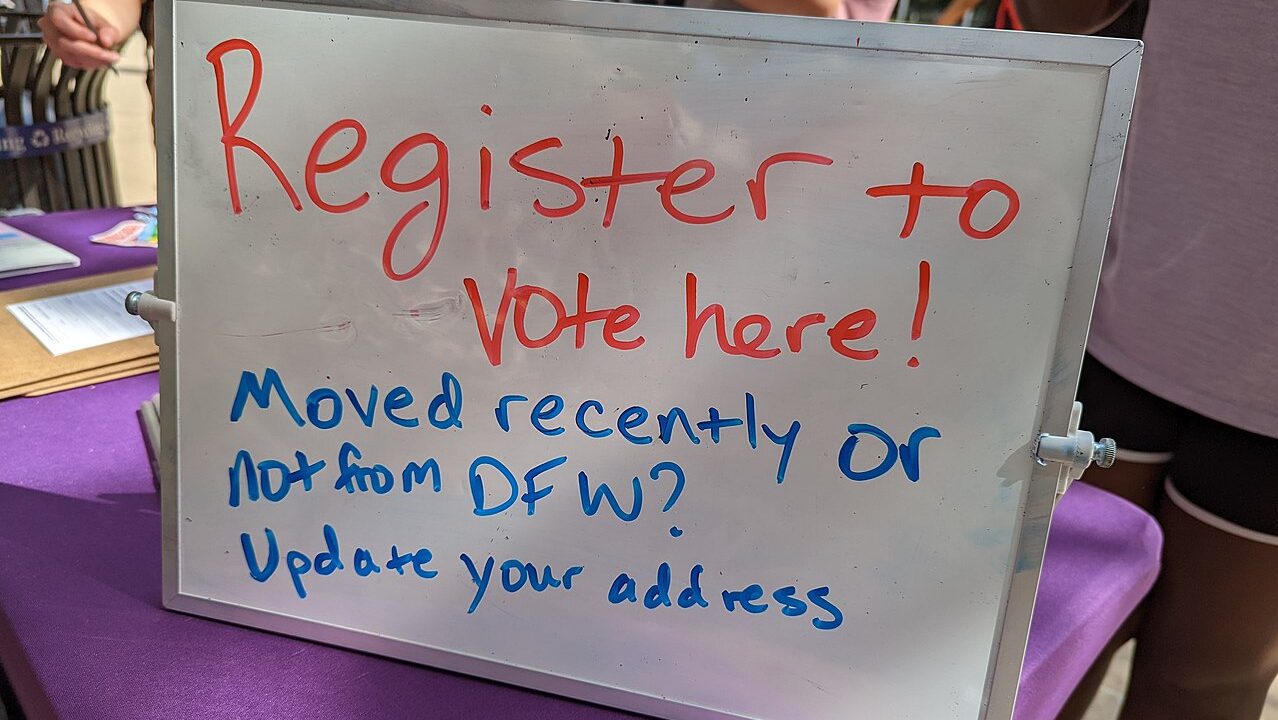 Register to
vote here!
Moved recently or
not from DFW?
Update your address